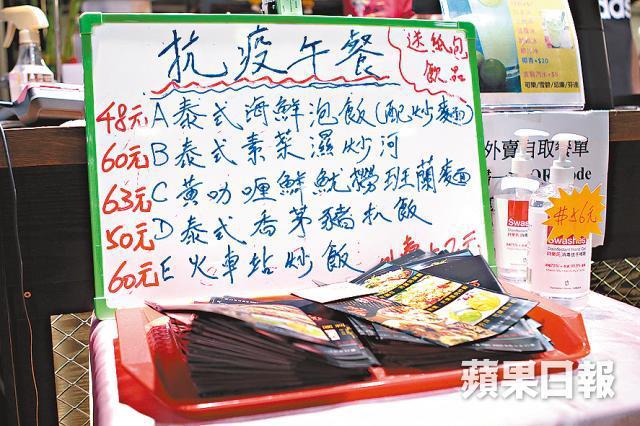 抗疫午餐
送紙包
飲品
48元 A 泰式海鮮泡飯(配炒麵)
60元 B 泰式素菜濕炒河
63元 C 黃咖喱鮮魷撈班蘭麵
50元 D 泰式香茅豬扒飯
60元 E 火車站炒飯
外賣自取餐單
Swashes
Swashes
56元
蘋果日報